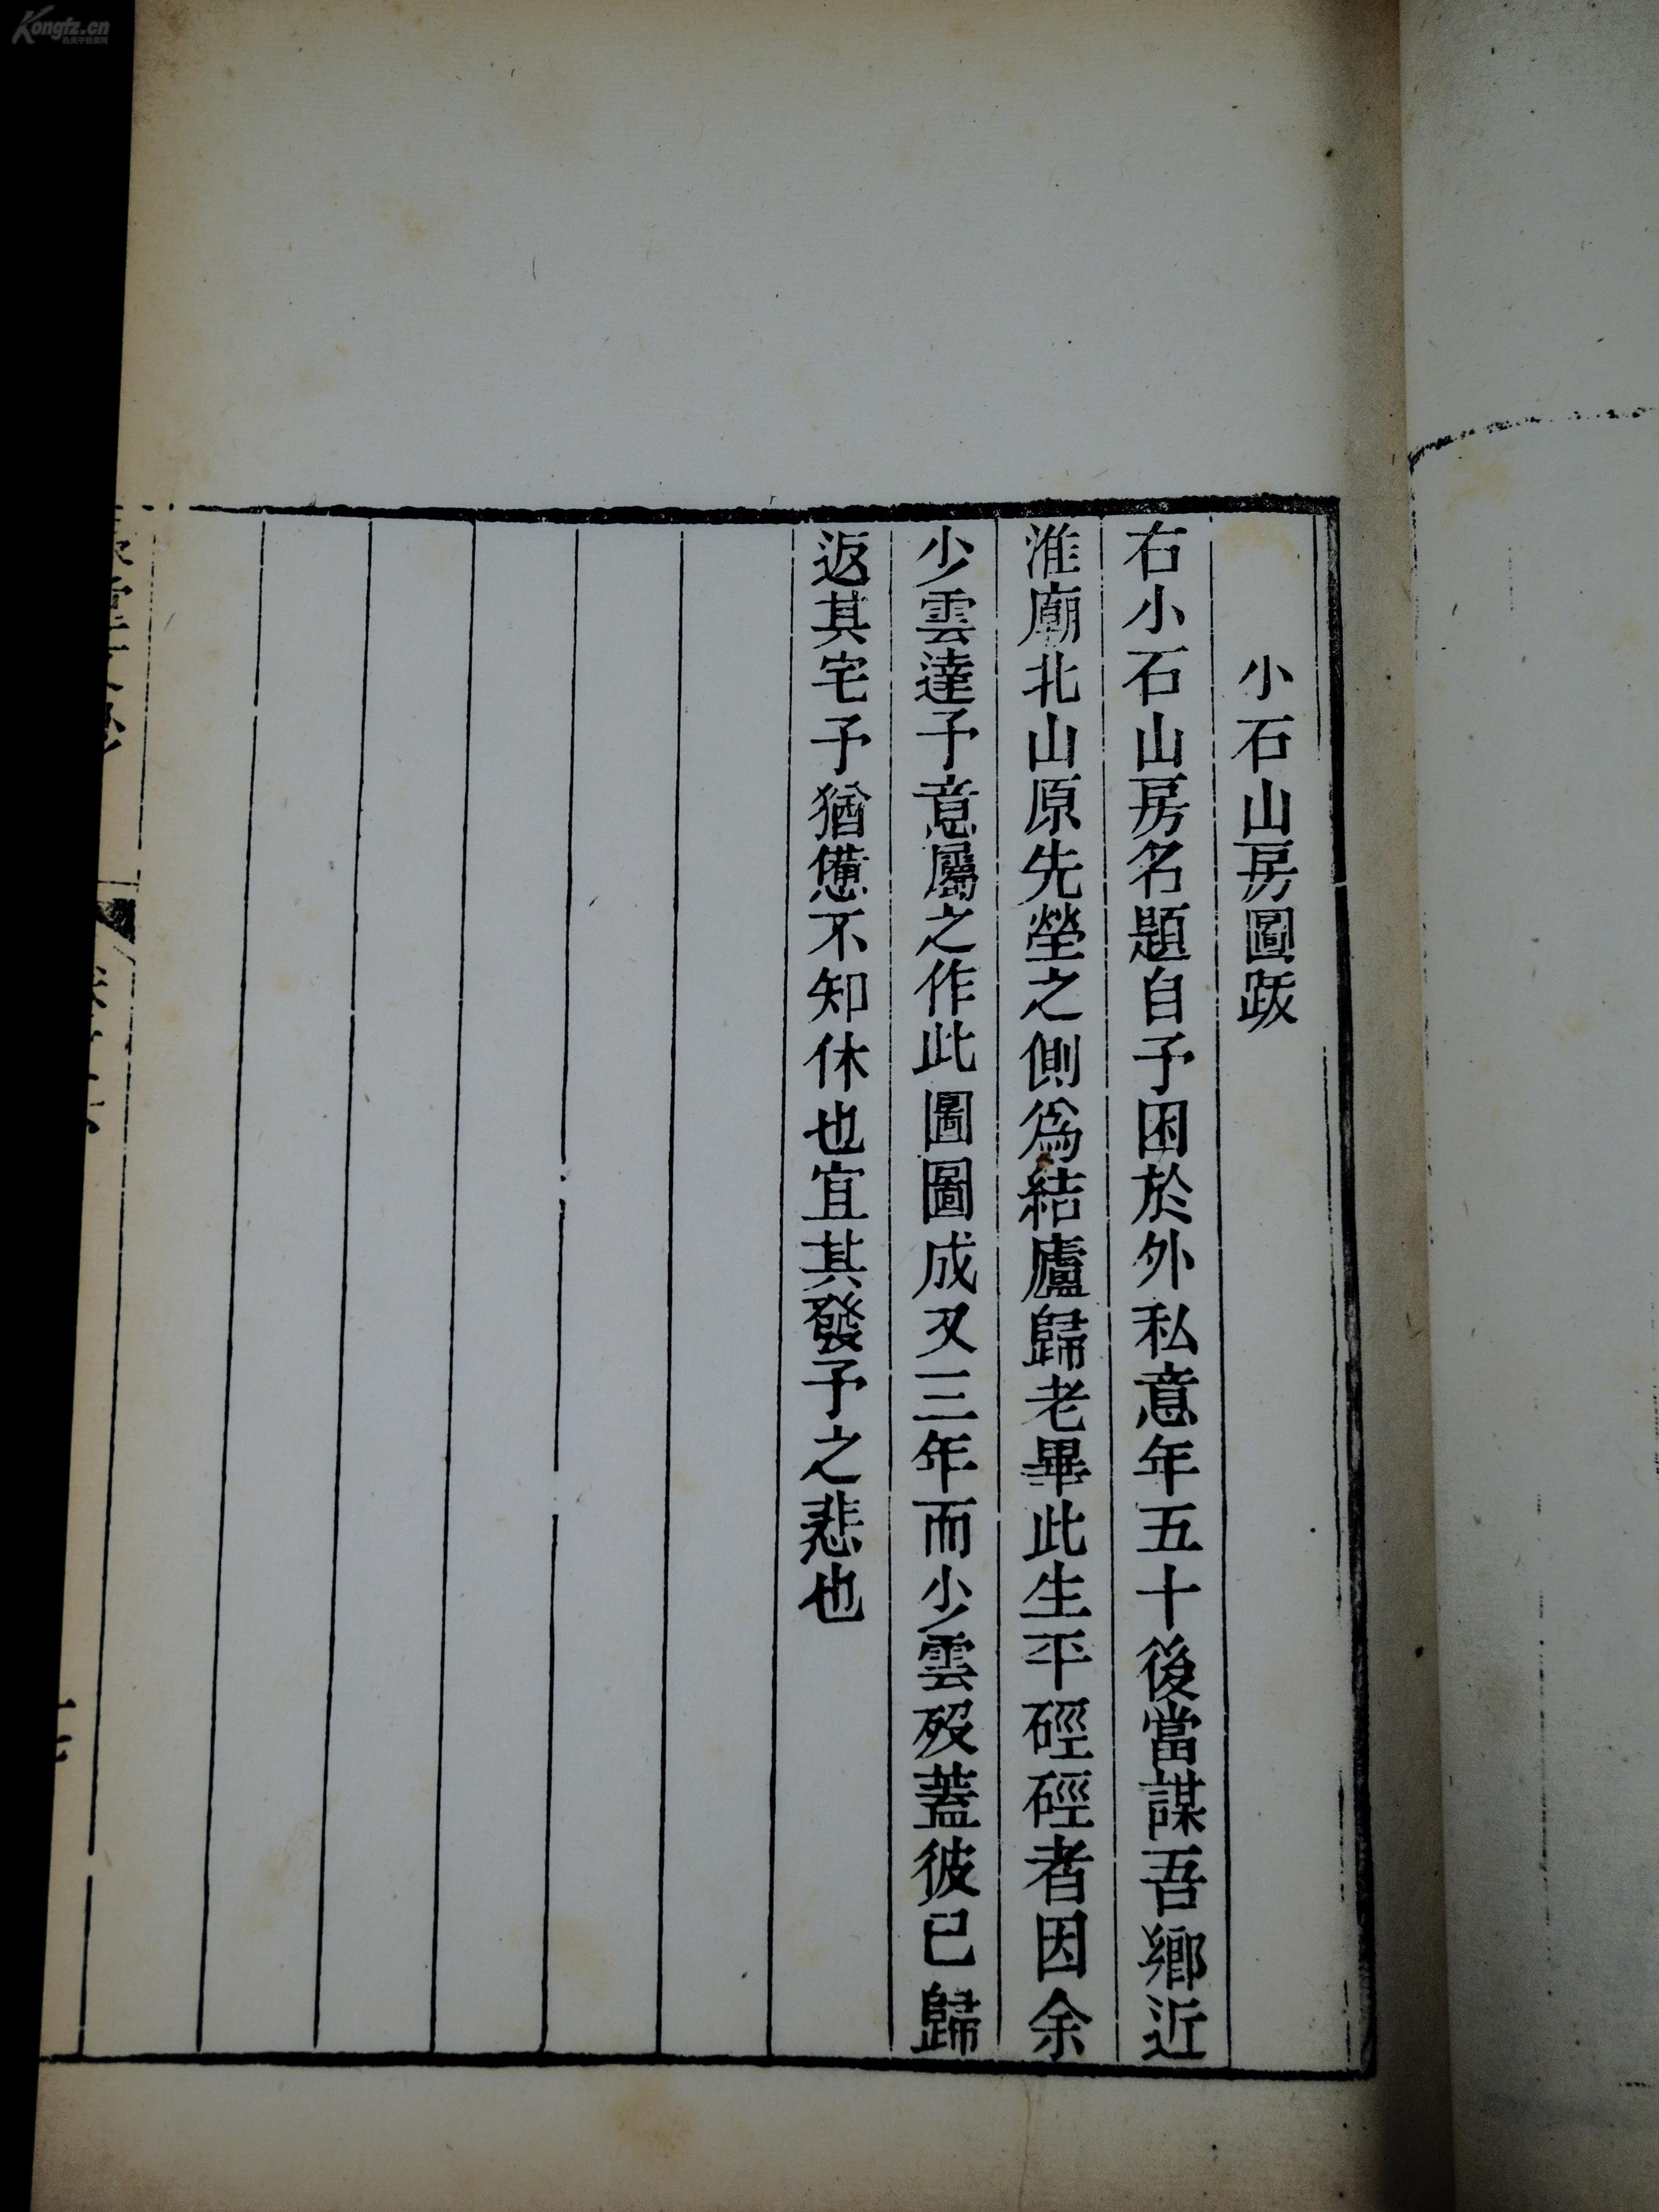 小石山房圖跋
右小石山房名題自予困於外私意年五十後當謀吾鄉近
淮廟北山原先塋之側爲結廬歸老畢此生平硜硜者因余
少雲達予意屬之作此圖圖成又三年而少雲歿蓋彼已歸
返其宅予猶憊不知休也宜其發予之悲也
Kongfz.cn